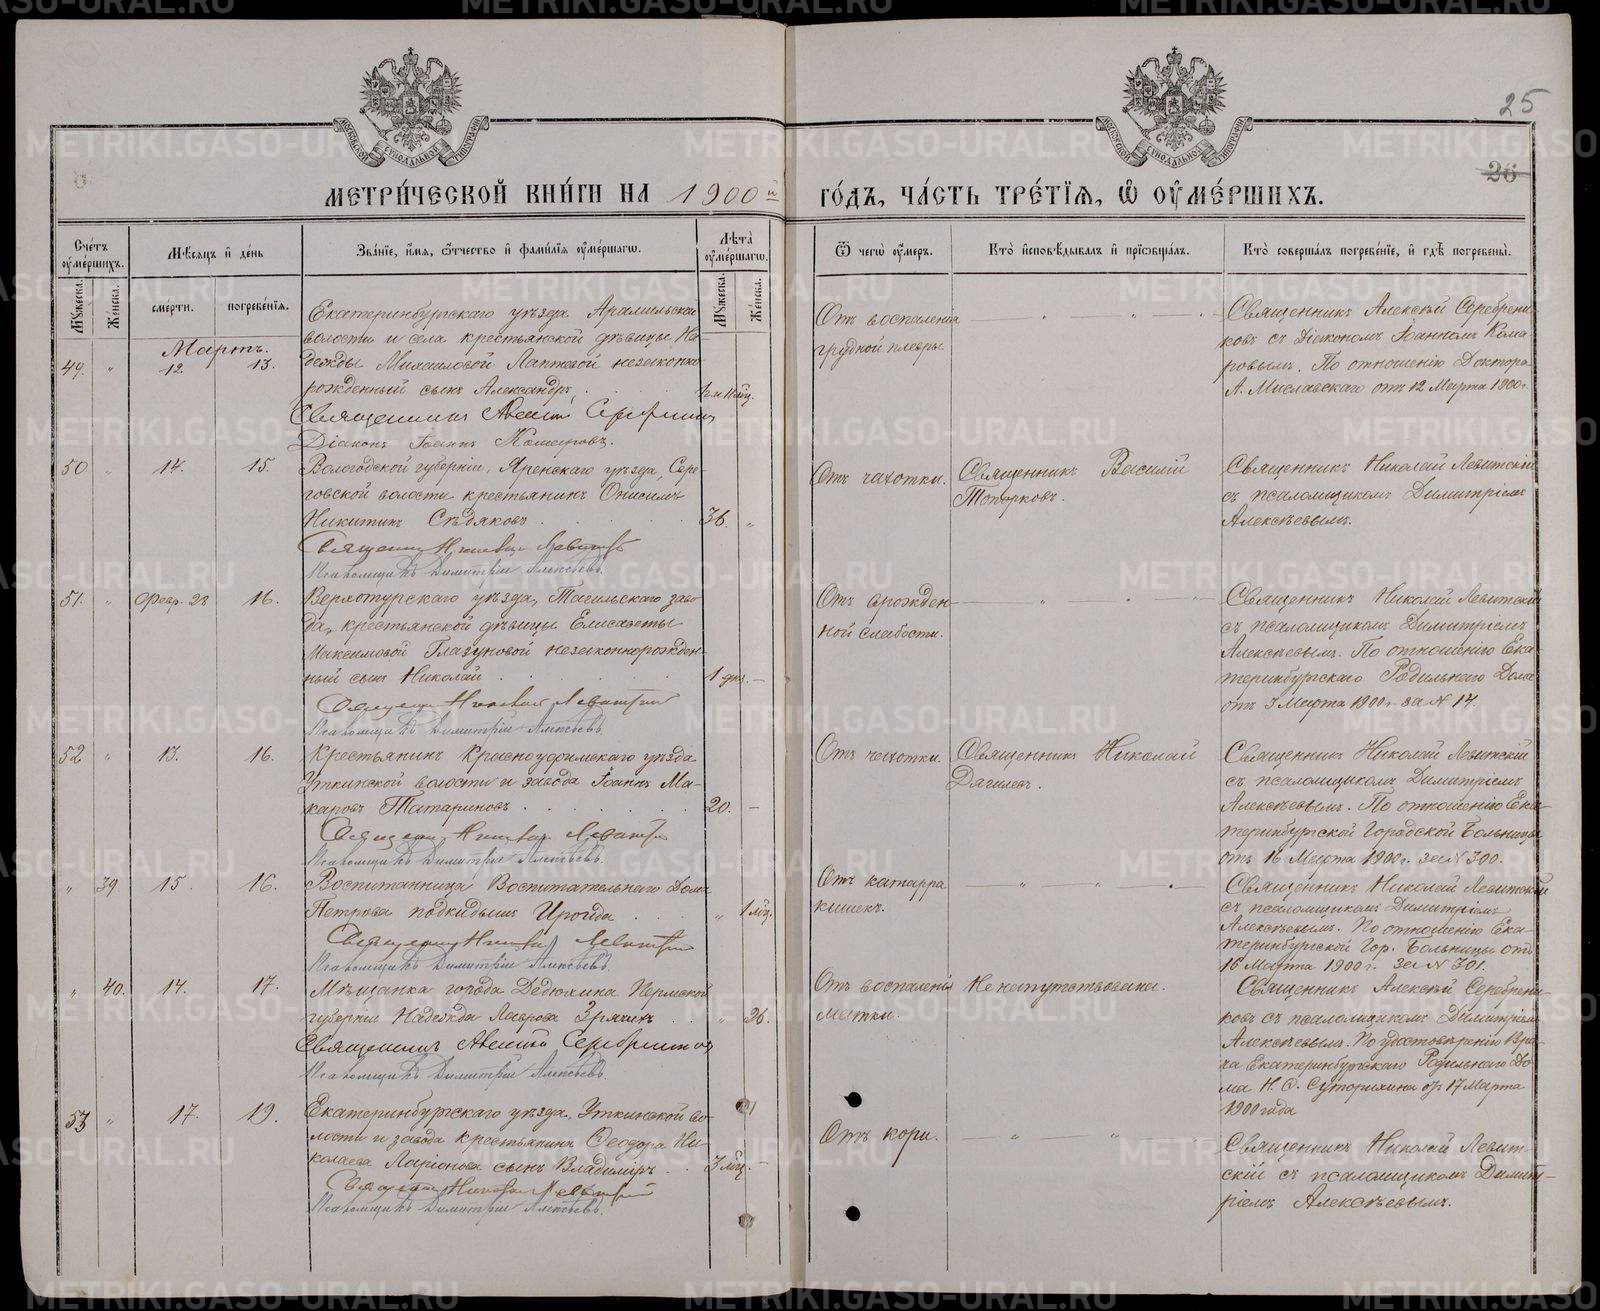 25
26
МОСКОВСКОЙ СѴНОДАЛЬНОЙ ТИПОГРАФІИ
МОСКОВСКОЙ СѴНОДАЛЬНОЙ ТИПОГРАФІИ
МЕТРИ́ЧЕСКОЙ КНИ́ГИ НА 1900й ГО́ДЪ, ЧА́СТЬ ТРЕ́ТІЯ, Ѡ҆ ОУ҆МЕ́РШИХЪ.
Сче́тъ оу҆ме́ршихъ.
Мѹ́жеска.
Же́нска.
Мѣ́сѧцъ и҆ де́нь
сме́рти.
погребе́нїѧ.
Зва́нїе, и҆́мѧ, ѻ҆́тчество и҆ фамѝлїѧ оу҆ме́ршагѡ.
Лѣта̀ оу҆ме́ршагѡ.
Мѹ́жеска.
Же́нска.
Ѿ чегѡ̀ оу҆́меръ.
Кто̀ и҆сповѣ́дывалъ и҆ прїѡбща́лъ.
Кто̀ соверша́лъ погребе́нїе, и҆ гдѣ̀ погребены̀.
Мартъ.
49. " 12. 13.
Екатеринбургскаго уѣзда Арамильской
волости и села крестьянской дѣвицы На-
дежды Михаиловой Лаптевой незаконно
рожденный сынъ Александръ
Священникъ Алексій Серебренниковъ
Діаконъ Іоаннъ Комаровъ.
Отъ воспаленія
грудной плевры.
Священникъ Алексѣй Серебрени-
ковъ съ діакономъ Іоанномъ Кома-
ровымъ. По отношенію Доктора
А. Миславскаго отъ 12 Марта 1900 г.
50 " 14. 15.
Вологодской губерніи, Яренскаго уѣзда, Сере-
говской волости крестьянинъ Онисимъ
Никитинъ Сѣдяковъ
36. "
Священникъ Николай Левитскій
Псаломщикъ Димитрій Алексѣевъ.
Отъ чахотки.
Священникъ Василій
Топорковъ.
Священникъ Николай Левитскій
съ псаломщикомъ Димитріемъ
Алексѣевымъ.
51. " Февр. 28 16.
Верхотурскаго уѣзда, Тагильскаго заво-
да, крестьянской дѣвицы Елисаветы
Максимовой Глазуновой незаконнорожден-
ный сынъ Николай
1 дня. —
Священникъ Николай Левитскій
Псаломщикъ Димитрій Алексѣевъ.
Отъ врожден-
ной слабости.
Священникъ Николай Левитскій
съ псаломщикомъ Димитріемъ
Алексѣевымъ. По отношенію Ека-
теринбургскаго Родильнаго Дома
отъ 3 Марта 1900 г. за № 14.
52 " 13. 16.
Крестьянинъ Красноуфимскаго уѣзда
Уткинской волости и завода Іоаннъ Ма-
каровъ Татариновъ
20. —
Священникъ Николай Левитскій
Псаломщикъ Димитрій Алексѣевъ.
Отъ чахотки.
Священникъ Николай
Дягилевъ.
Священникъ Николай Левитскій
съ псаломщикомъ Димитріемъ
Алексѣевымъ. По отношенію Ека-
теринбургской Городской Больницы
отъ 16 Марта 1900 г. за № 300.
" 39. 15. 16.
Воспитанница Воспитательнаго Дома
Петрова подкидышъ Ироида
" 1 мѣц.
Священникъ Николай Левитскій
Псаломщикъ Димитрій Алексѣевъ.
Отъ катарра
кишекъ.
Священникъ Николай Левитскій
съ псаломщикомъ Димитріемъ
Алексѣевымъ. По отношенію Ека-
теринбургской Гор. Больницы отъ
16 Марта 1900 г. за № 301.
" 40. 14. 17.
Мѣщанка города Дедюхина Пермской
губерніи Надежда Лаврова Зрячихъ
" 26.
Священникъ Алексій Серебренниковъ
Псаломщикъ Димитрій Алексѣевъ.
Отъ воспаленія
матки.
Не напутствована.
Священникъ Алексѣй Серебрени-
ковъ съ псаломщикомъ Димитріемъ
Алексѣевымъ. По удостовѣренію Вра-
ча Екатеринбургскаго Родильнаго До-
ма Н. С. Суторихина отъ 17 Марта
1900 года
53 " 17. 19.
Екатеринбургскаго уѣзда, Уткинской во-
лости и завода крестьянина Ѳеодора Ни-
колаева Ларіонова сынъ Владиміръ
3 мѣц. —
Священникъ Николай Левитскій
Псаломщикъ Димитрій Алексѣевъ.
Отъ кори.
Священникъ Николай Левит-
скій съ псаломщикомъ Димит-
ріемъ Алексѣевымъ.
METRIKI.GASO-URAL.RU